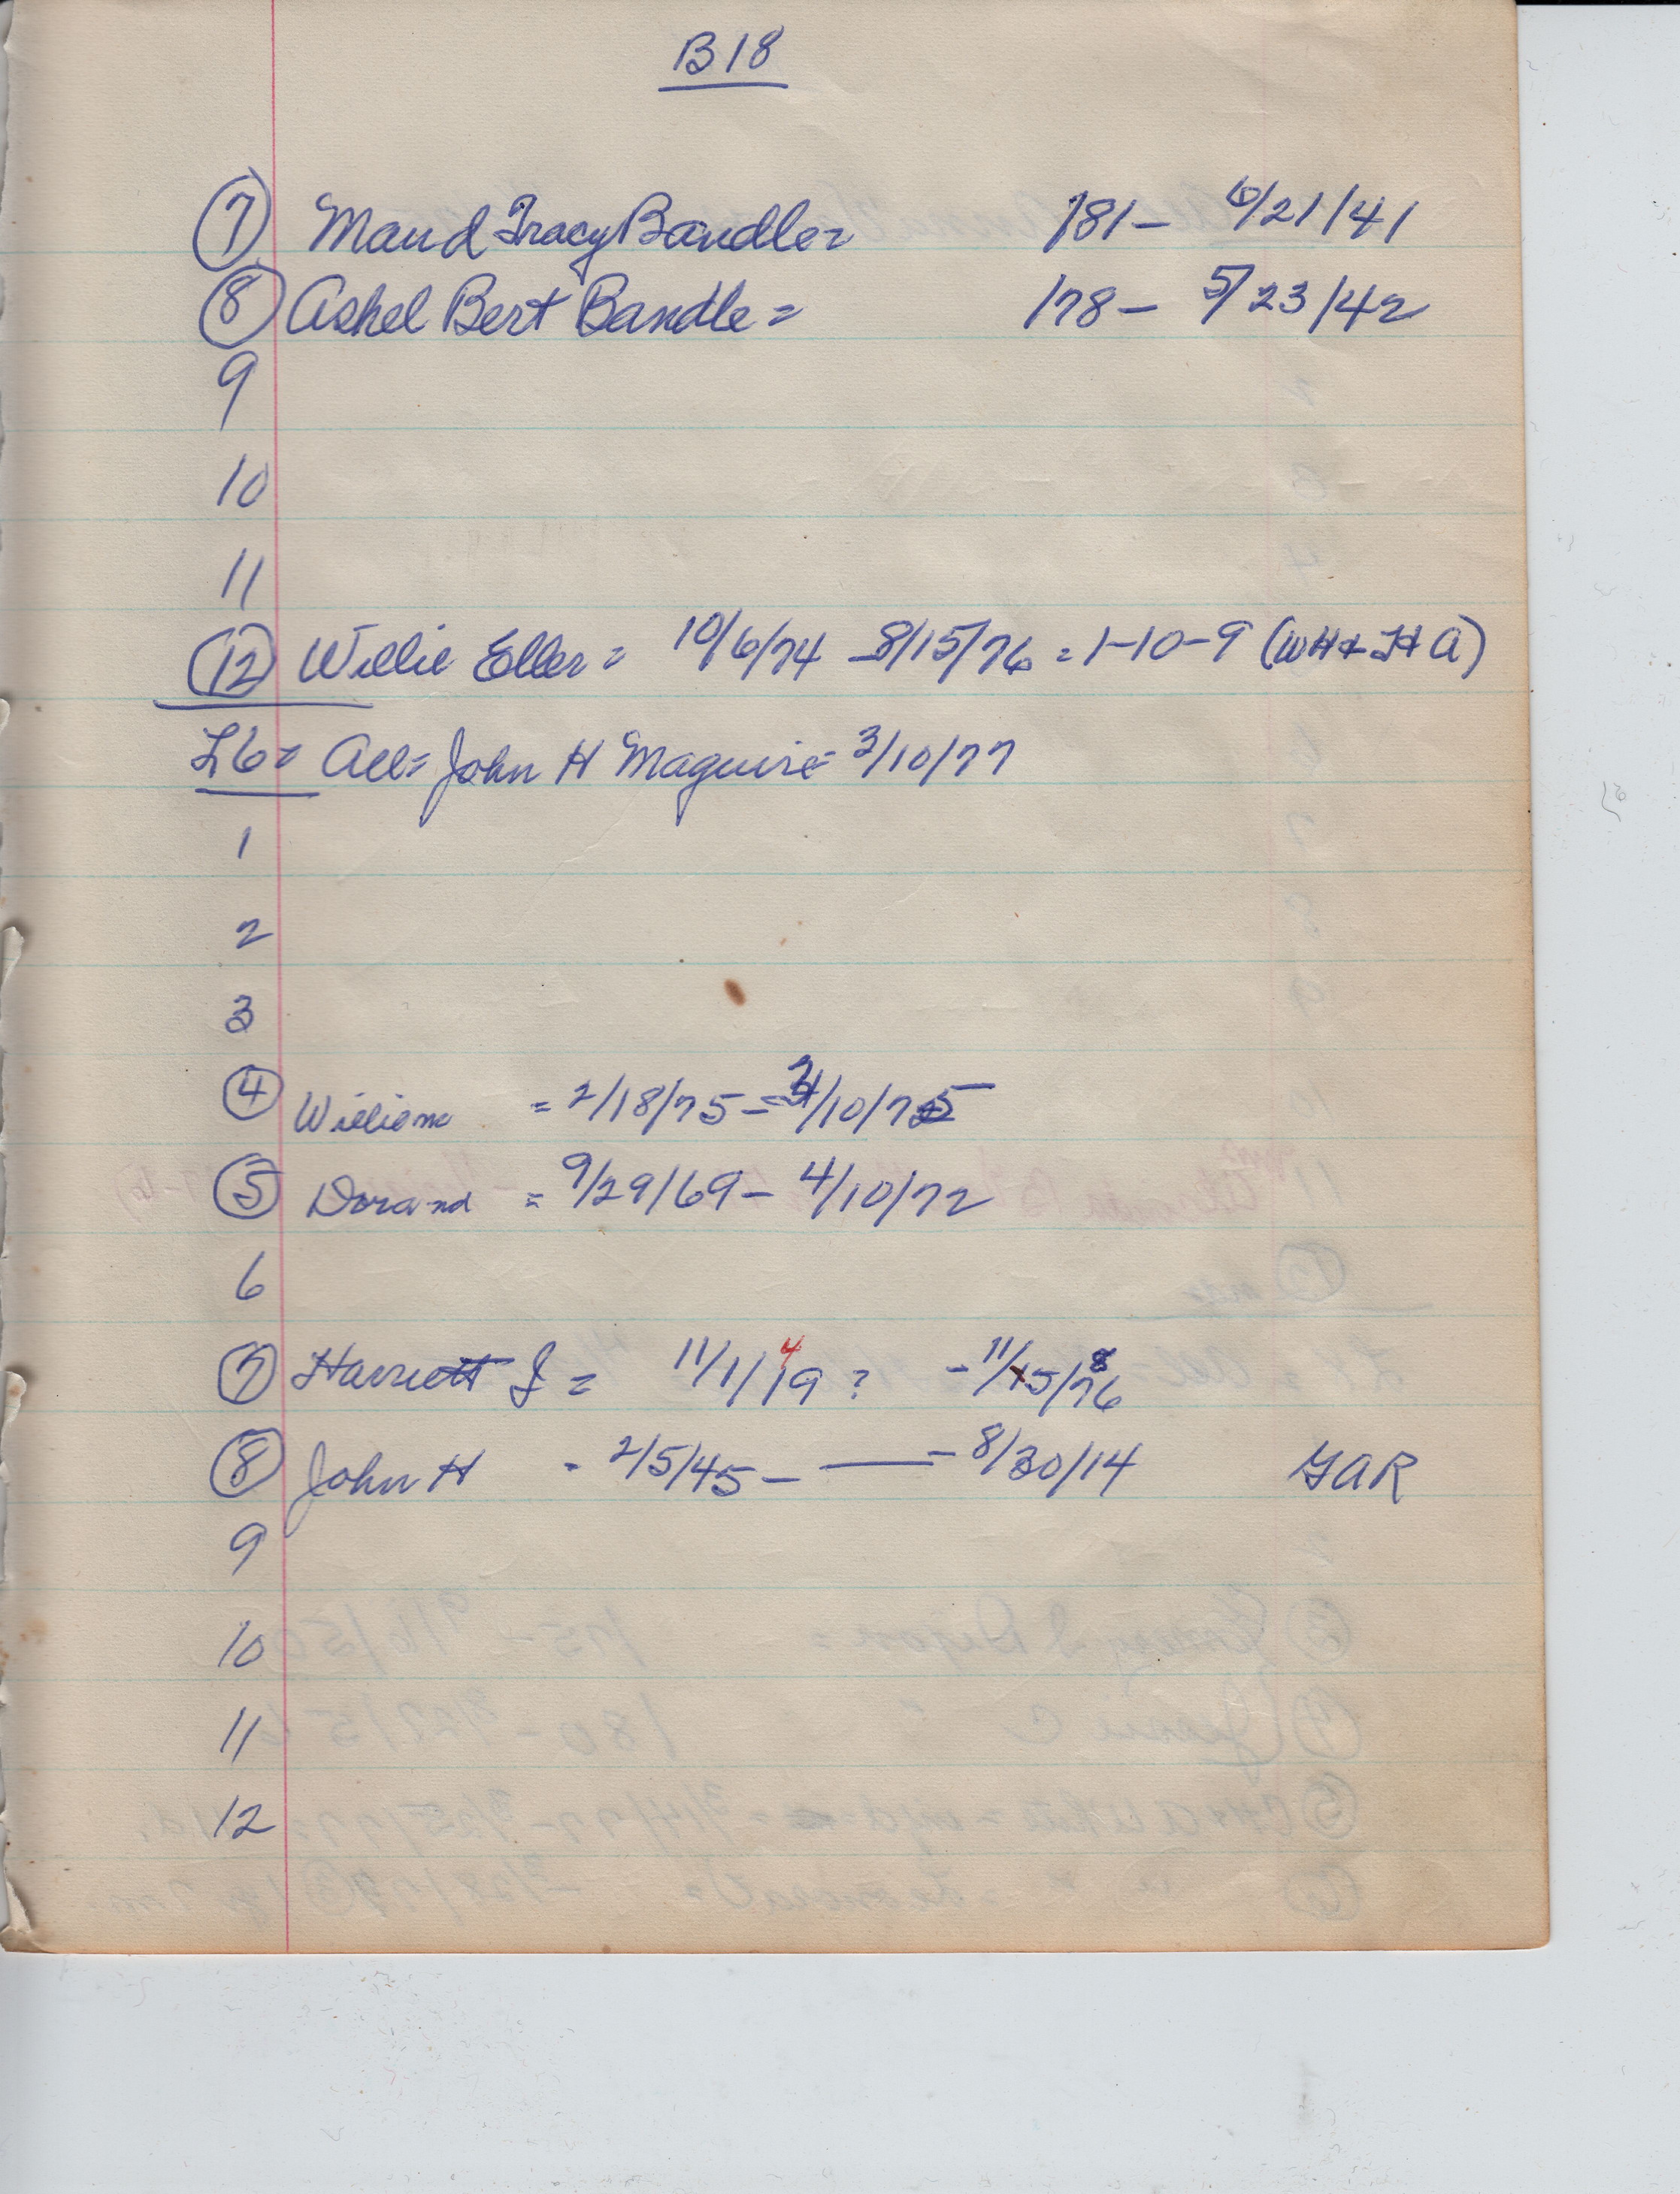 B18
7 Maud Tracy Bandle = 181 - 6/21/41
8 Ashel Bert Bandle = 178 - 5/23/42
9
10
11
12 Willie Eller = 10/6/74 - 8/15/76 = 1-10-9 (WH & JHA)
L6 = All = John H Maguire = 3/10/77
1
2
3
4 William = 2/18/75 - /10/75
5 Dorand = 9/29/69 - 4/10/72
6
7 Harriett J = 11/1/19 4 ? - 11/15/76 8
8 John H - 2/5/45 - — - 8/30/14 GAR
9
10
11
12